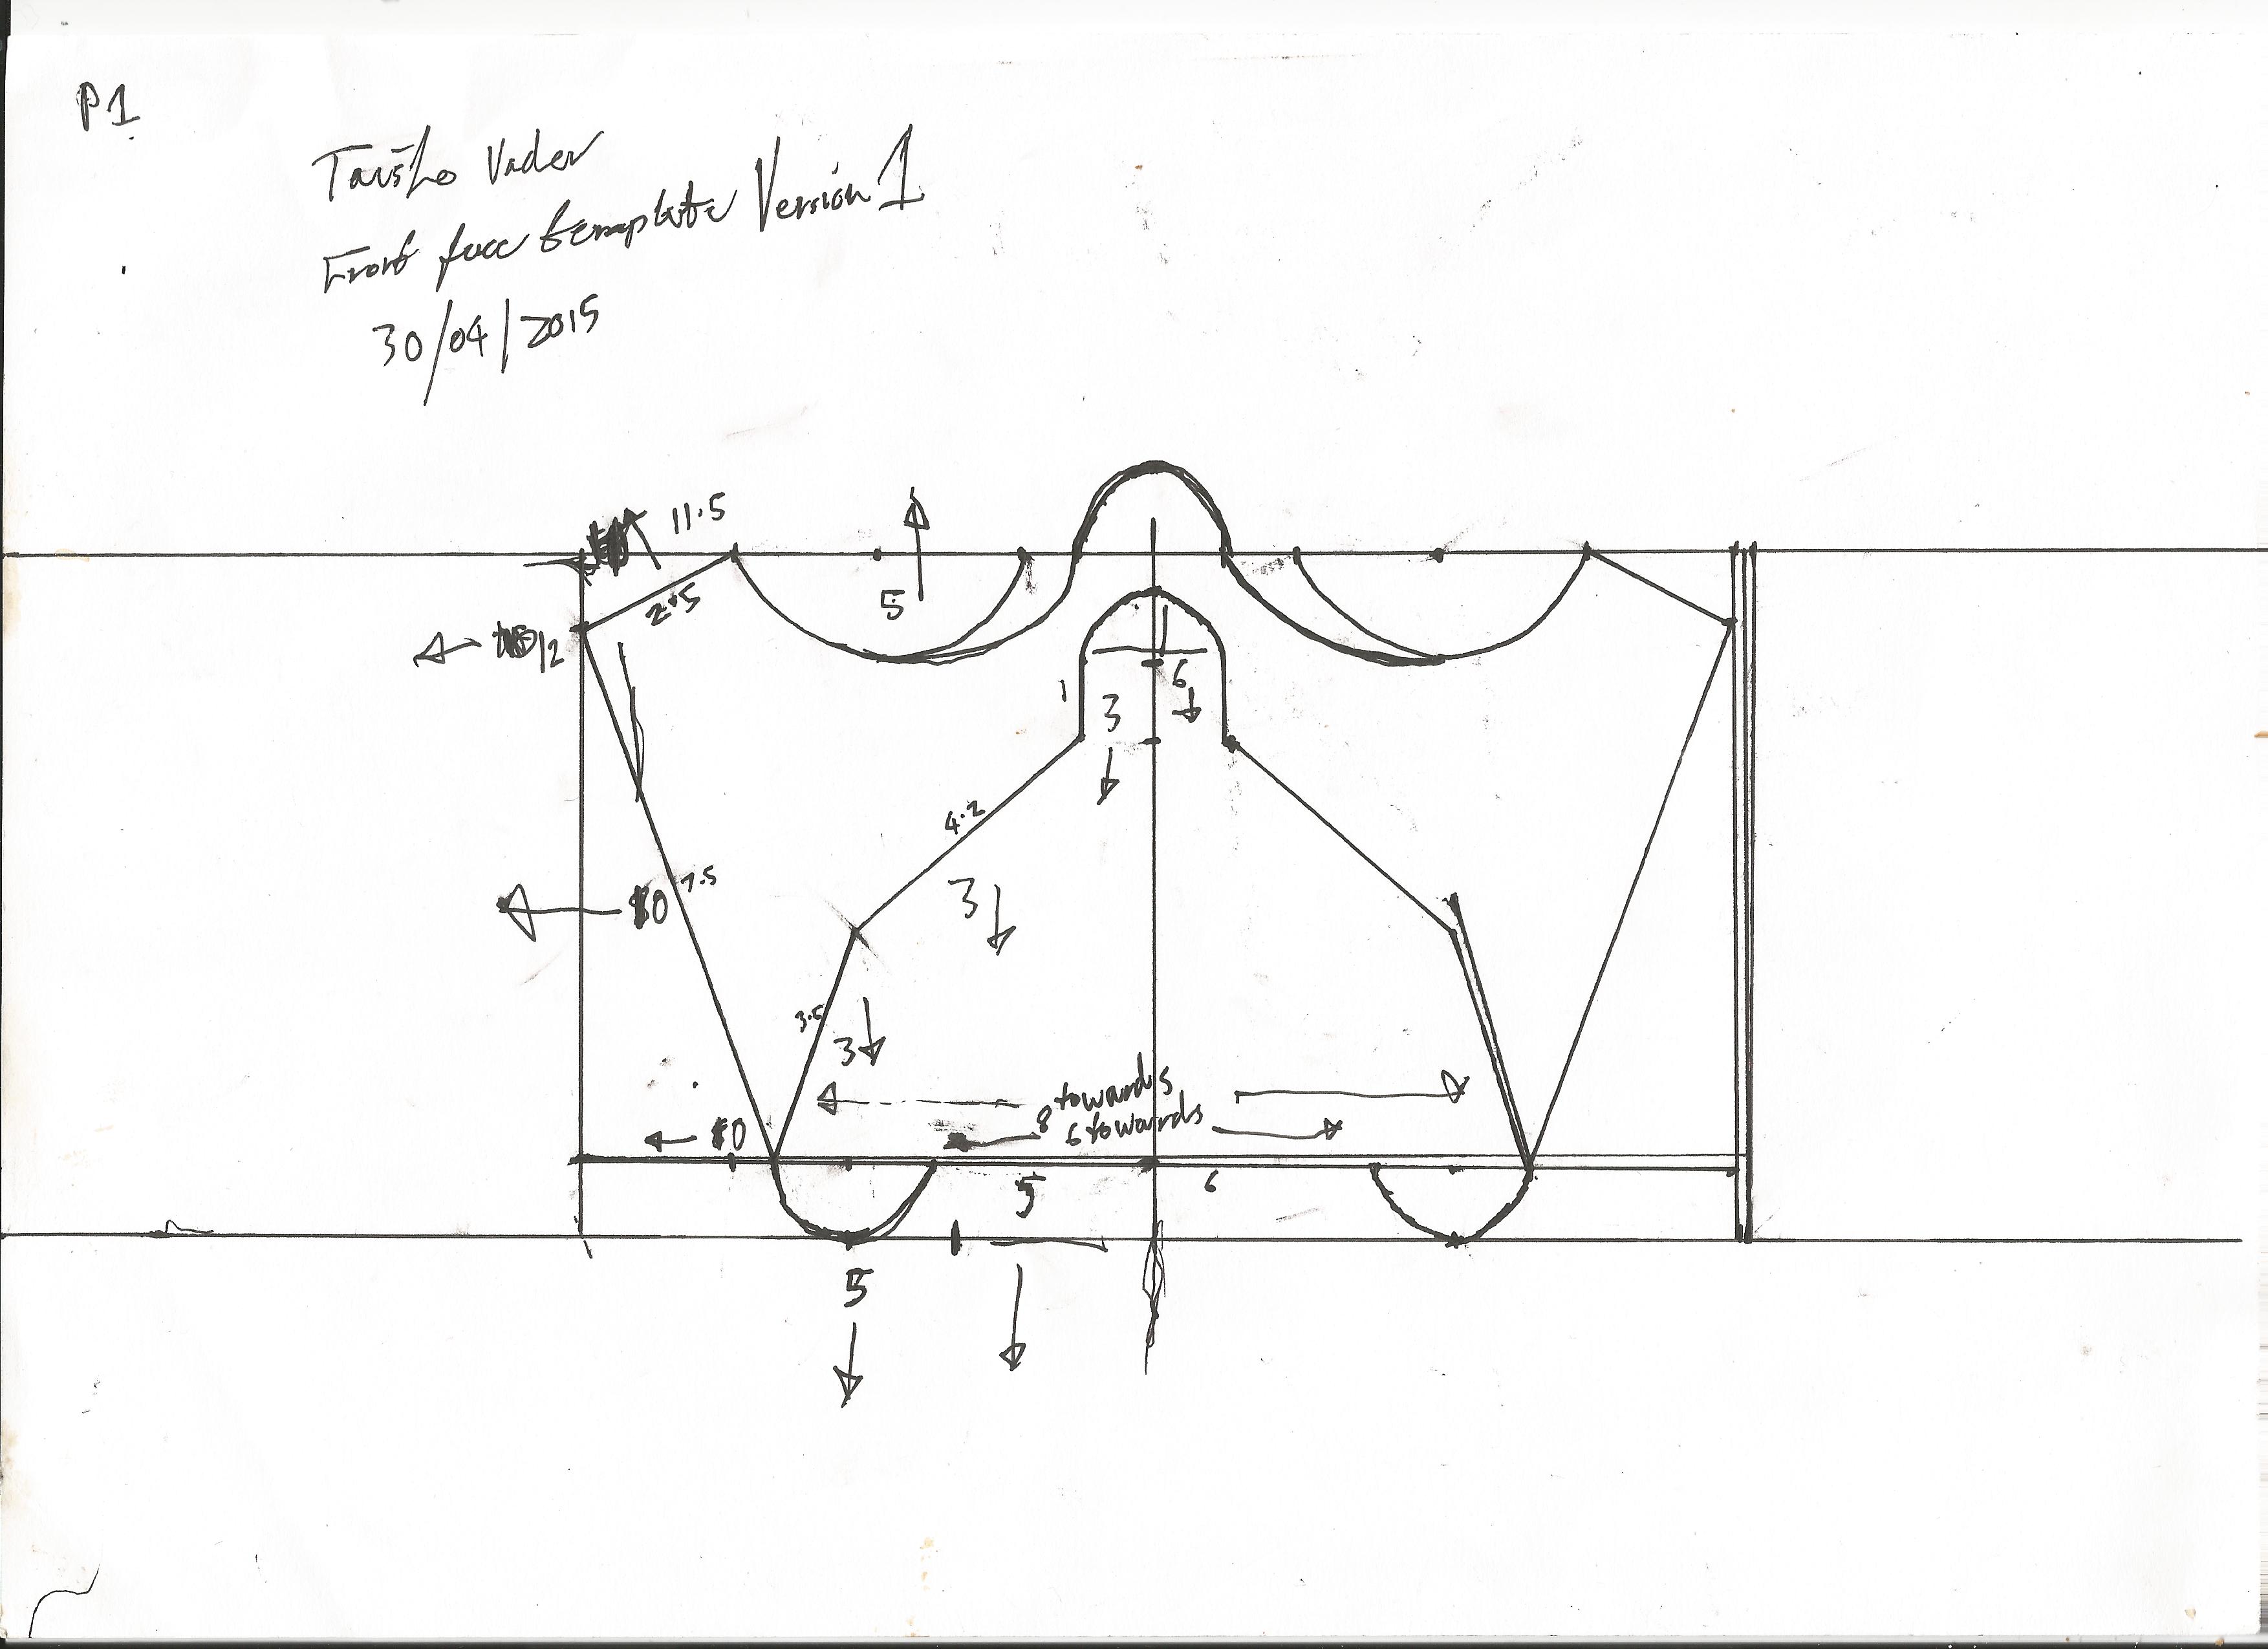 P1
Taisho Vader
Front face template Version 1
30/04/2015
11.5
5
2.5
6
1
3
4.2
7.5
3
3.5
3
8 towards
6 towards
5
6
5